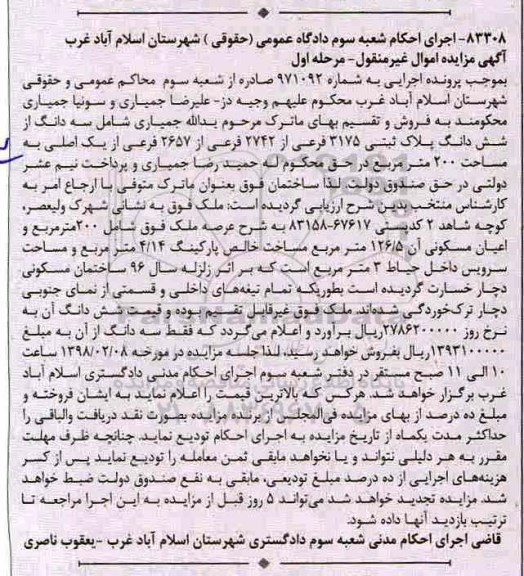 ۸۳۳۰۸- اجرای احکام شعبه سوم دادگاه عمومی (حقوقی ) شهرستان اسلام آباد غرب
آگهی مزایده اموال غیرمنقول- مرحله اول
بموجب پرونده اجرایی به شماره ۹۷۱۰۹۲ صادره از شعبه سوم محاکم عمومی و حقوقی
شهرستان اسلام آباد غرب محکوم علیهم وجیه دژ- علیرضا جمیاری و سونیا جمیاری
محکومند به فروش و تقسیم بهای ماترک مرحوم یدالله جمیاری شامل سه دانگ از
شش دانگ پلاک ثبتی ۳۱۷۵ فرعی از ۲۷۴۲ فرعی از ۲۶۵۷ فرعی از یک اصلی به
مساحت ۲۰۰ متر مربع در حق محکوم له حمید رضا جمیاری و پرداخت نیم عشر
دولتی در حق صندوق دولت لذا ساختمان فوق بعنوان ماترک متوفی با ارجاع امر به
کارشناس منتخب بدین شرح ارزیابی گردیده است: ملک فوق به نشانی شهرک ولیعصر،
کوچه شاهد ۲ کدپستی ۶۷۶۱۷-۸۳۱۵۸ به شرح عرصه ملک فوق شامل ۲۰۰مترمربع و
اعیان مسکونی آن ۱۲۶/۵ متر مربع مساحت خالص پارکینگ ۴/۱۴ متر مربع و مساحت
سرویس داخل حیاط ۳ متر مربع است که بر اثر زلزله سال ۹۶ ساختمان مسکونی
دچار خسارت گردیده است بطوریکه تمام تیغه‌های داخلی و قسمتی از نمای جنوبی
دچار ترک‌خوردگی شده‌اند. ملک فوق غیرقابل تقسیم بوده و قیمت شش دانگ آن به
نرخ روز ۲۷۸۶۲۰۰۰۰۰ریال برآورد و اعلام می‌گردد که فقط سه دانگ از آن به مبلغ
۱۳۹۳۱۰۰۰۰۰ریال بفروش خواهد رسید، لذا جلسه مزایده در مورخه ۱۳۹۸/۰۲/۰۸ ساعت
۱۰ الی ۱۱ صبح مستقر در دفتر شعبه سوم اجرای احکام مدنی دادگستری اسلام آباد
غرب برگزار خواهد شد. هرکس که بالاترین قیمت را اعلام نماید به ایشان فروخته و
مبلغ ده درصد از بهای مزایده فی‌المجلس از برنده مزایده بصورت نقد دریافت والباقی را
حداکثر مدت یکماه از تاریخ مزایده به اجرای احکام تودیع نماید. چنانچه ظرف مهلت
مقرر به هر دلیلی نتواند و یا نخواهد مابقی ثمن معامله را تودیع نماید پس از کسر
هزینه‌های اجرایی از ده درصد مبلغ تودیعی، مابقی به نفع صندوق دولت ضبط خواهد
شد. مزایده تجدید خواهد شد می‌تواند ۵ روز قبل از مزایده به این اجرا مراجعه تا
ترتیب بازدید آنها داده شود.
قاضی اجرای احکام مدنی شعبه سوم دادگستری شهرستان اسلام آباد غرب -یعقوب ناصری